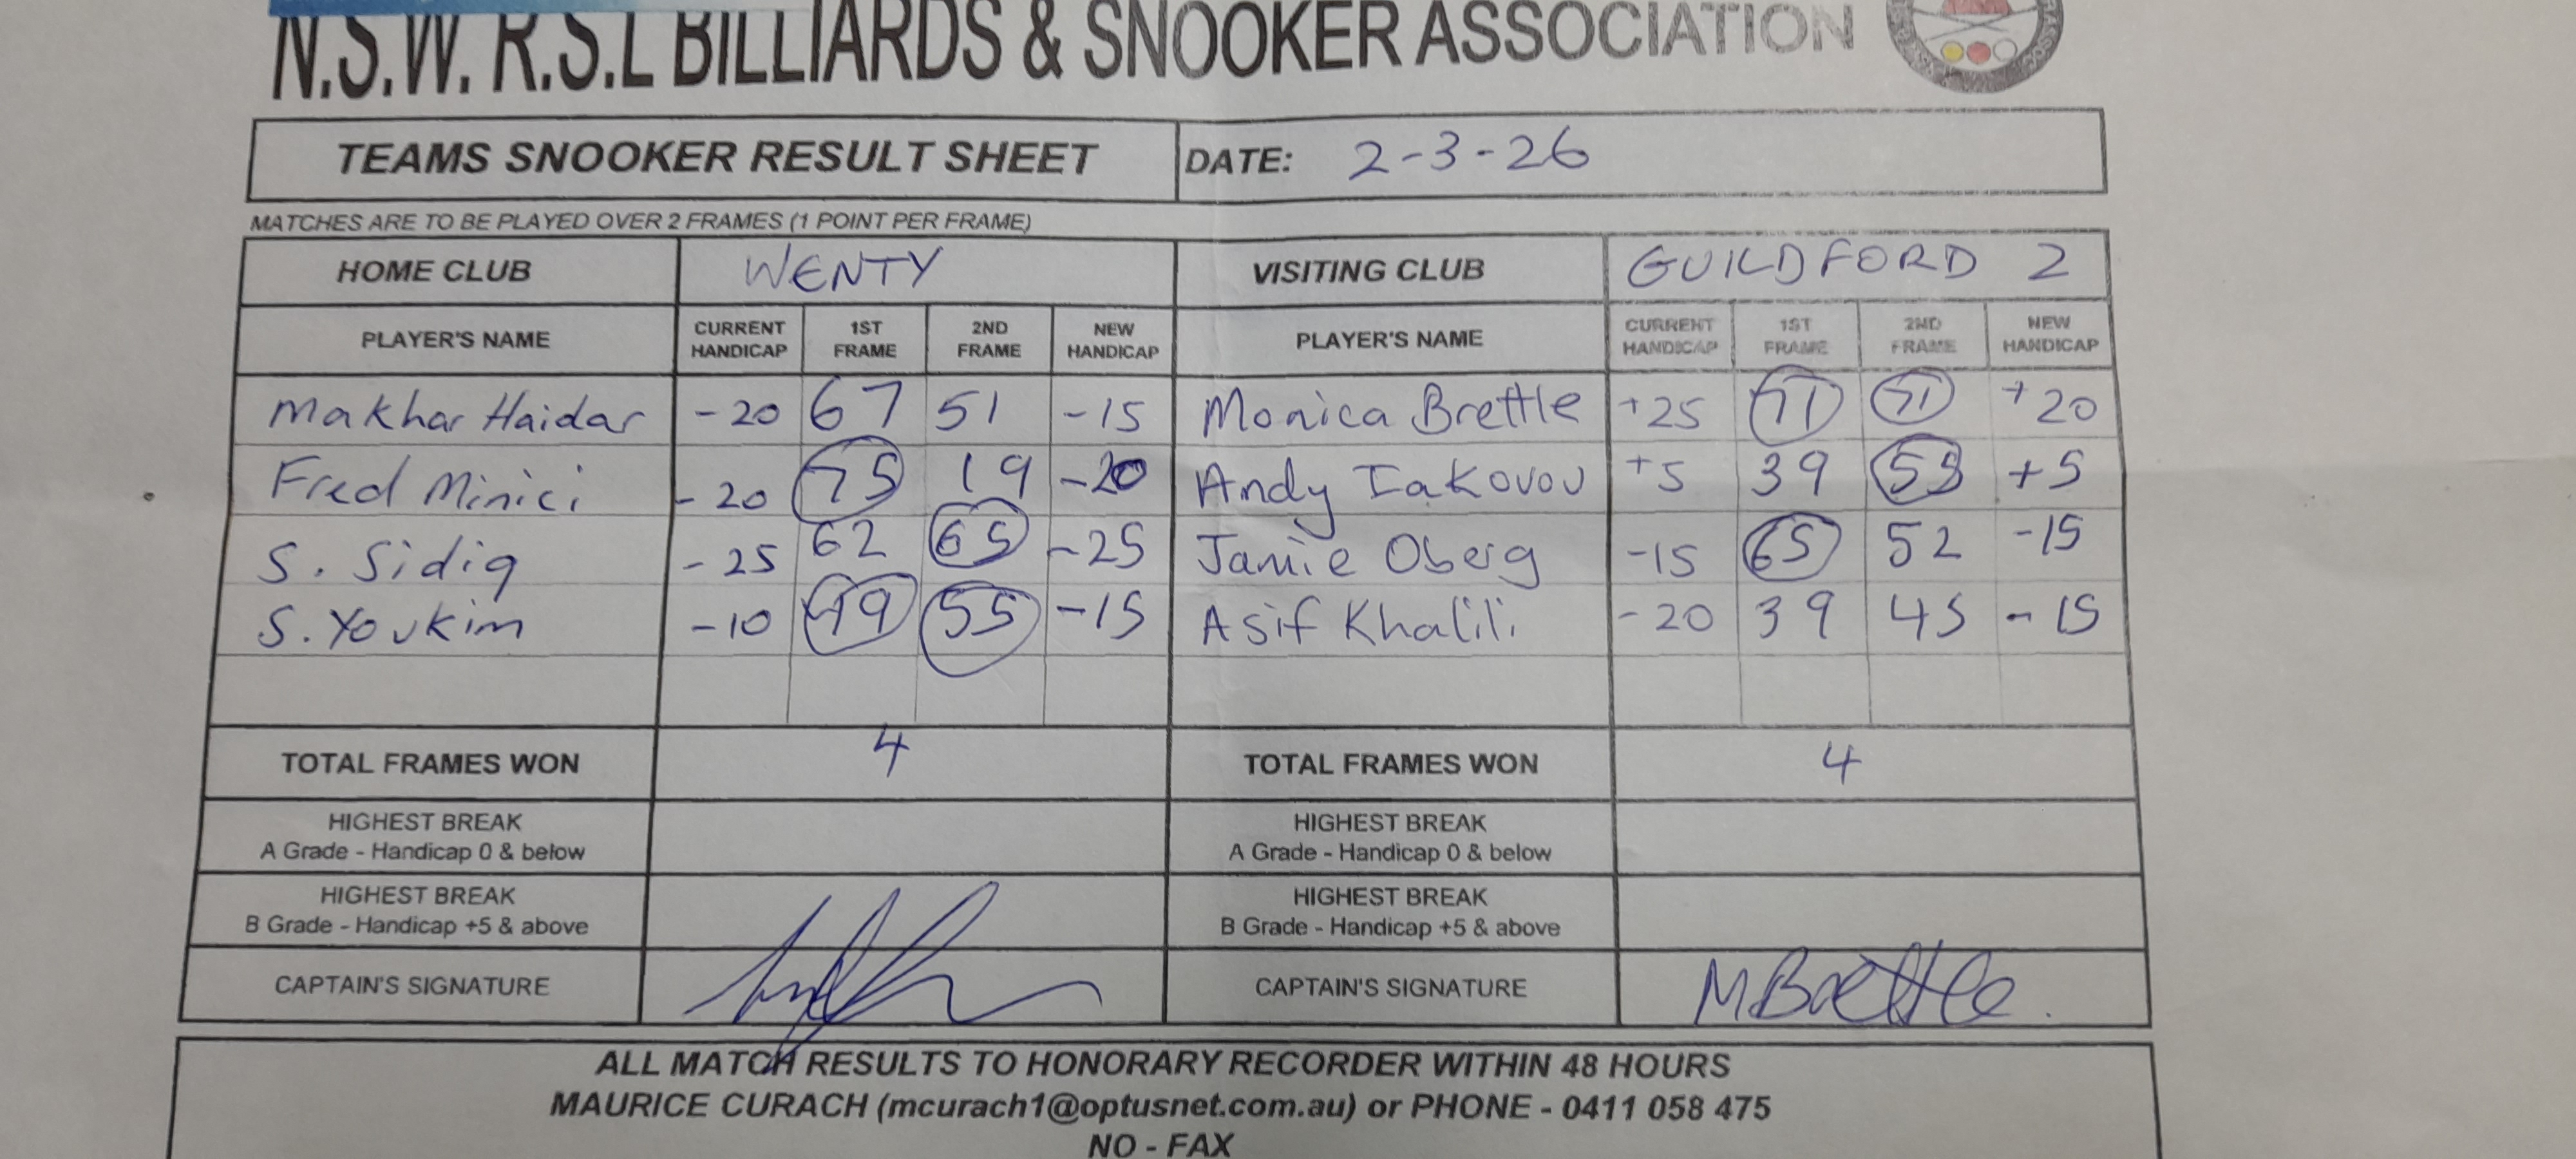 N.S.W. R.S.L BILLIARDS & SNOOKER ASSOCIATION
TEAMS SNOOKER RESULT SHEET DATE: 2-3-26
MATCHES ARE TO BE PLAYED OVER 2 FRAMES (1 POINT PER FRAME)
HOME CLUB WENTY VISITING CLUB GUILDFORD 2
PLAYER'S NAME CURRENT HANDICAP 1ST FRAME 2ND FRAME NEW HANDICAP PLAYER'S NAME CURRENT HANDICAP 1ST FRAME 2ND FRAME NEW HANDICAP
Makhar Haidar -20 67 51 -15 Monica Brettle +25 71 71 +20
Fred Minici -20 75 19 -20 Andy Iakovou +5 39 53 +5
S. Sidiq -25 62 65 -25 Jamie Oberg -15 65 52 -15
S. Youkim -10 79 55 -15 Asif Khalili -20 39 45 -15
TOTAL FRAMES WON 4 TOTAL FRAMES WON 4
HIGHEST BREAK HIGHEST BREAK
A Grade - Handicap 0 & below A Grade - Handicap 0 & below
HIGHEST BREAK HIGHEST BREAK
B Grade - Handicap +5 & above B Grade - Handicap +5 & above
CAPTAIN'S SIGNATURE CAPTAIN'S SIGNATURE MBrettle.
ALL MATCH RESULTS TO HONORARY RECORDER WITHIN 48 HOURS
MAURICE CURACH (mcurach1@optusnet.com.au) or PHONE - 0411 058 475
NO - FAX